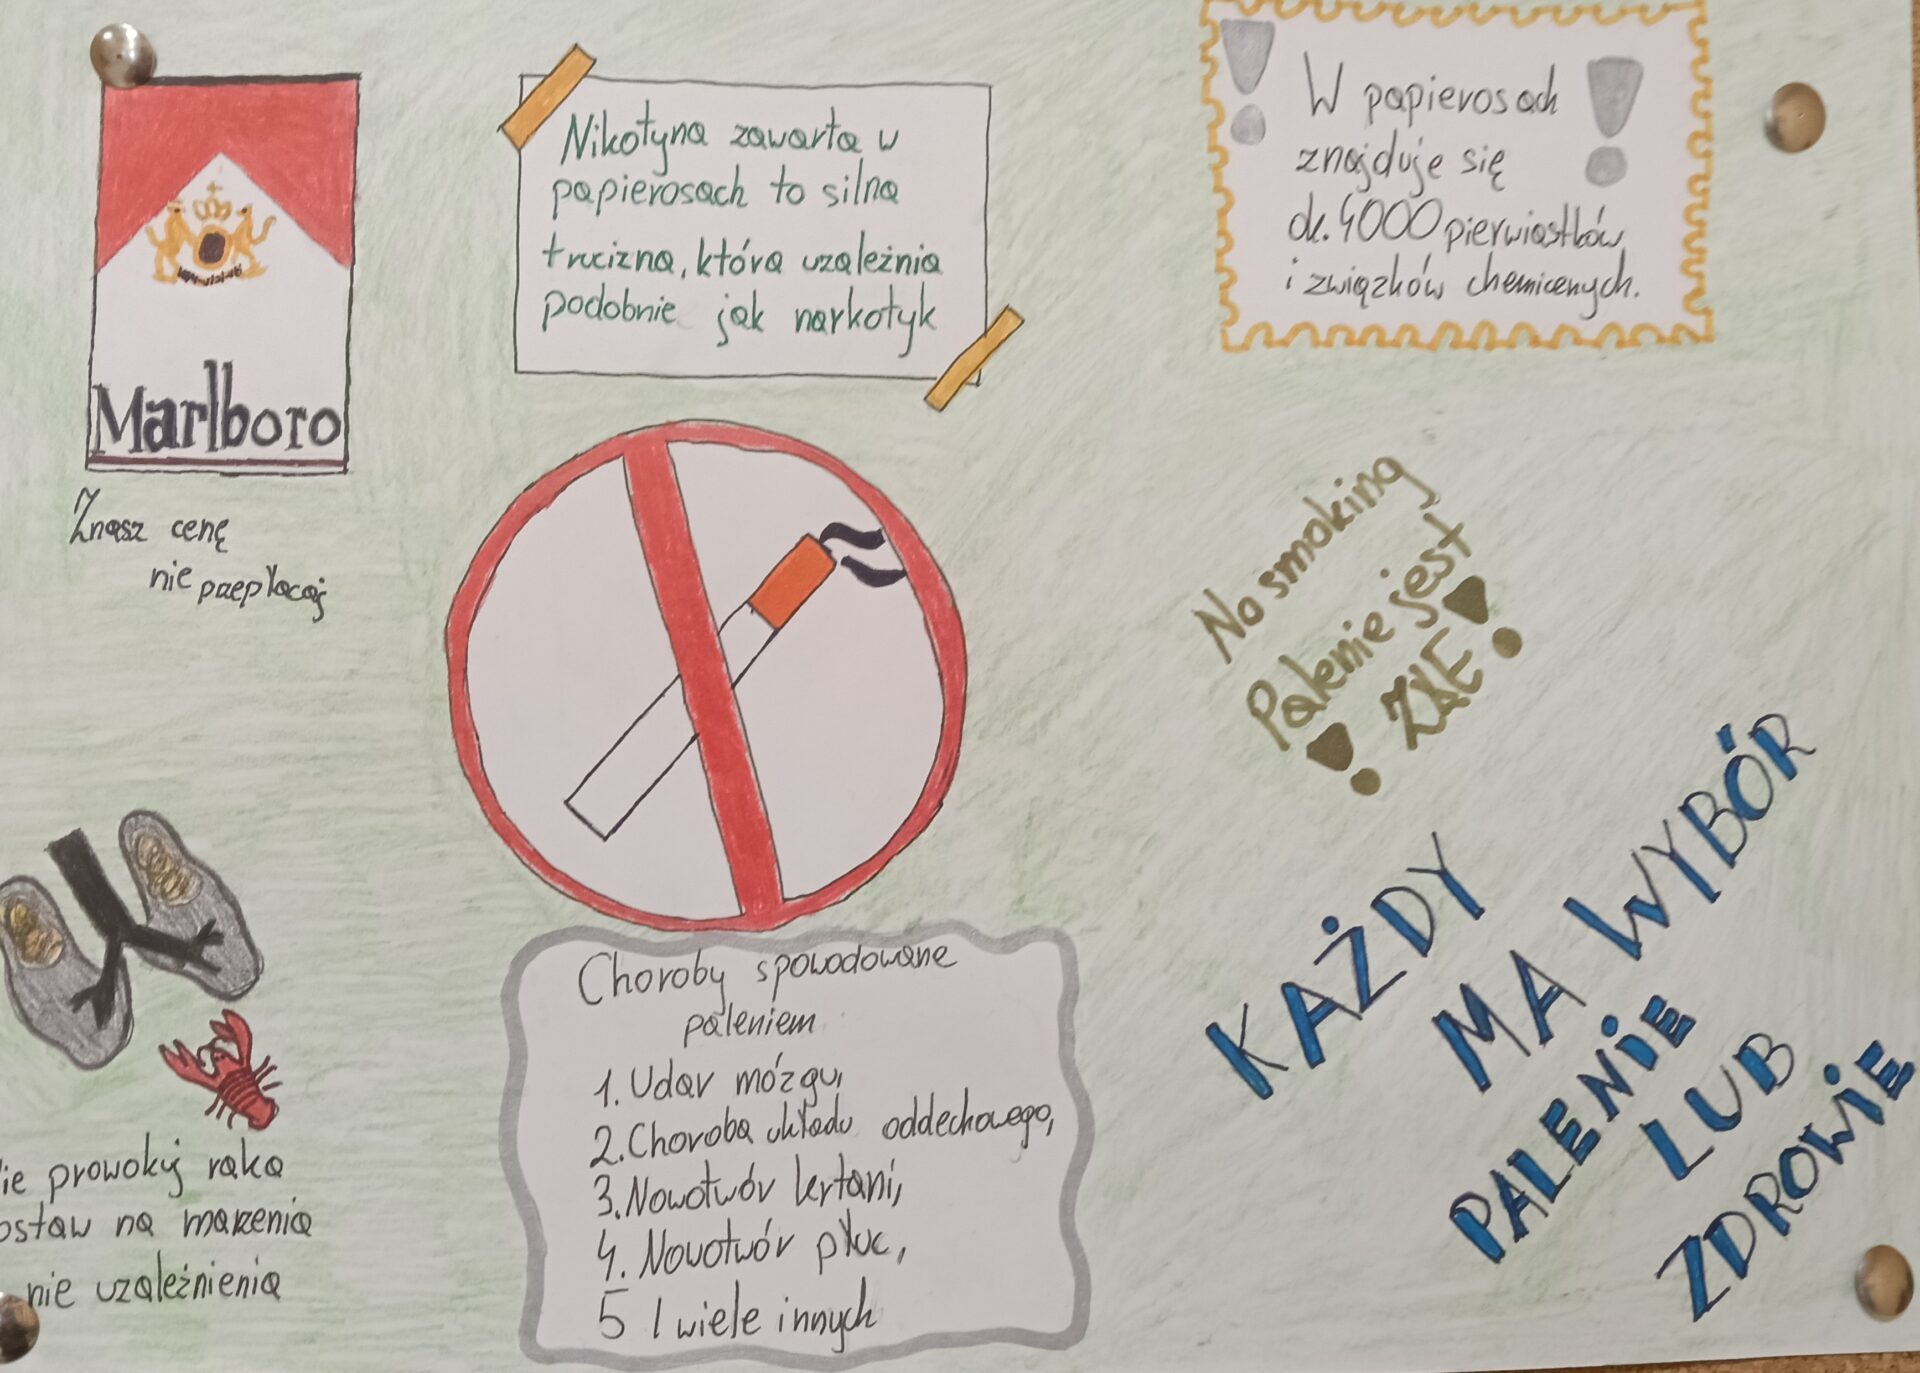 Marlboro
Znasz cenę
nie przepłacaj
Nikotyna zawarta w
papierosach to silna
trucizna, która uzależnia
podobnie jak narkotyk
W papierosach
znajduje się
ok. 4000 pierwiastków
i związków chemicznych.
No smoking
Palenie jest
ZŁE
KAŻDY
MA WYBÓR
PALENIE
LUB
ZDROWIE
Choroby spowodowane
paleniem
1. Udar mózgu,
2. Choroba układu oddechowego,
3. Nowotwór krtani,
4. Nowotwór płuc,
5 I wiele innych
ie prowokuj raka
ostaw na marzenia
nie uzależnienia